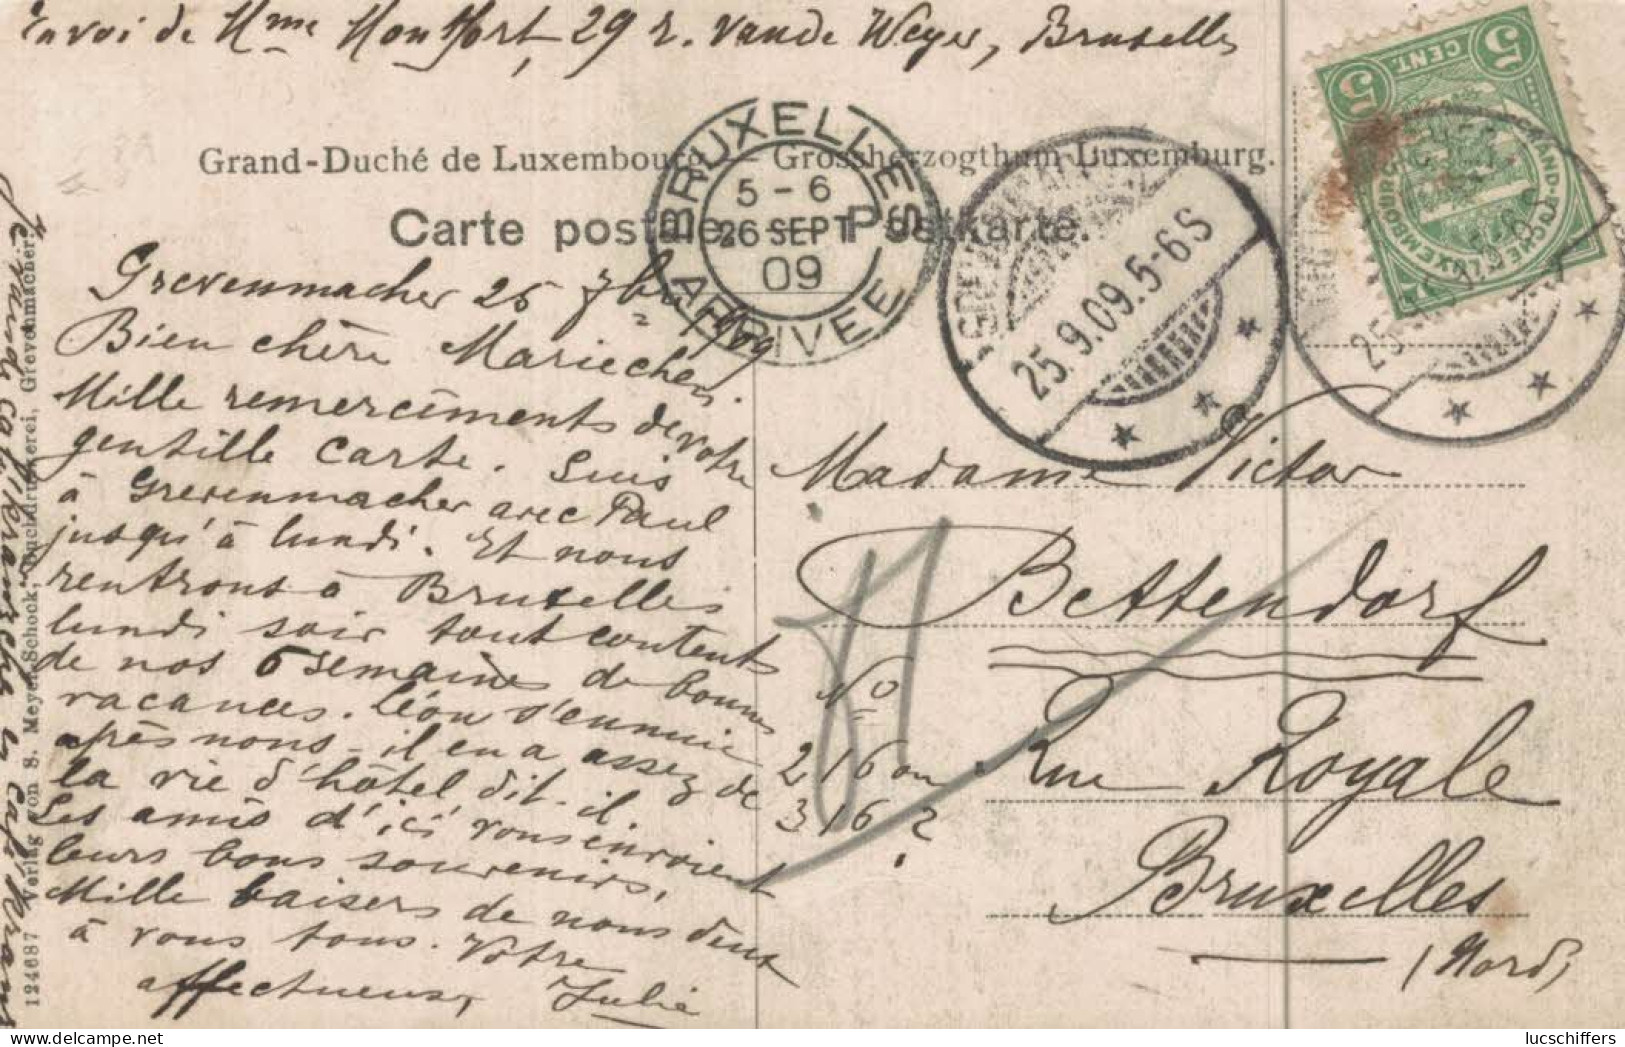 Envoi de Mme Montfort, 29 r. vande Weyer, Bruxelles
Grand-Duché de Luxembourg — Grossherzogthum Luxemburg.
Carte postale. — Postkarte.
BRUXELLES
5 - 6
26 SEPT
09
ARRIVEE
25.9.09.5-6S
5 CENT. 5
Grevenmacher 25 7bre 1909
Bien chère Mariechen.
Mille remercîments de votre
gentille carte. Suis
à Grevenmacher avec Paul
jusqu'à lundi. Et nous
rentrons à Bruxelles
lundi soir tout contents
de nos 6 semaines de bonnes
vacances. Léon s'ennuie
après nous - il en a assez de
la vie d'hôtel dit-il
Les amis d'ici vous envoient
leurs bons souvenirs.
Mille baisers de nous deux
à vous tous. Votre
affectueuse, Julie
Madame Victor
Bettendorf
No
216 ou
316 ?
Rue Royale
Bruxelles
(Nord)
124687 Verlag von S. Meyer-Schock, Buchdruckerei, Grevenmacher
lucschiffers